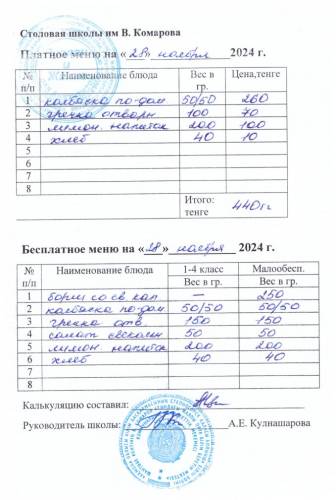 Столовая школы им В. Комарова
Платное меню на « 28 » ноября 2024 г.
№ п/п Наименование блюда Вес в гр. Цена,тенге
1 колбаска по-дом 50/50 260
2 гречка отварн 100 70
3 лимон. напиток 200 100
4 хлеб 40 10
5
6
7
8
Итого: тенге 440тг
Бесплатное меню на « 28 » ноября 2024 г.
№ п/п Наименование блюда 1-4 класс Малообесп.
Вес в гр. Вес в гр.
1 борщ со св. кап — 250
2 колбаска по-дом 50/50 50/50
3 гречка отв. 150 150
4 салат свеколн 50 50
5 лимон. напиток 200 200
6 хлеб 40 40
7
8
Калькуляцию составил:
Руководитель школы: А.Е. Кулнашарова